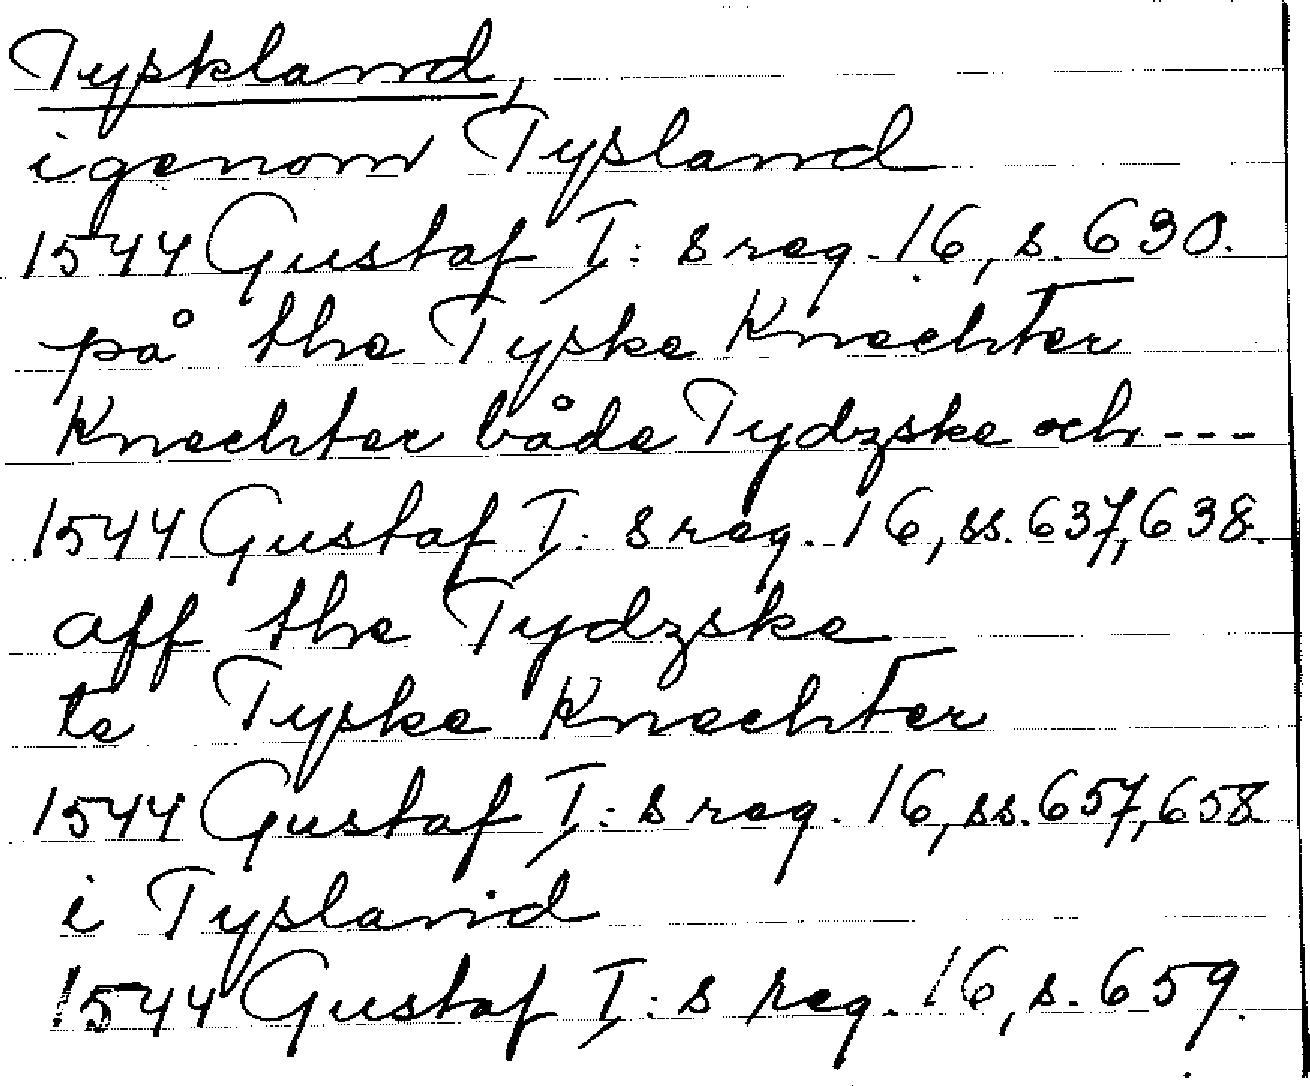 Tyskland,
igenom Tysland
1544 Gustaf I: s reg. 16, s. 630.
på the Tyske Knechter
Knechter både Tydzske och ---
1544 Gustaf I: s reg. 16, ss. 637, 638.
aff the Tydzske
te Tyske Knechter
1544 Gustaf I: s reg. 16, ss. 657, 658.
i Tysland
1544 Gustaf I: s reg. 16, s. 659.